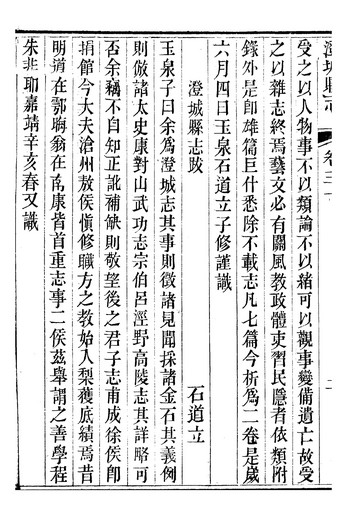 澄城縣志 卷二十
受之以人物事不以類論不以緒可以觀事變備遺亡故受
之以雜志終焉藝文必有關風教政體吏習民隱者依類附
錄外是卽雄篇巨什悉除不載志凡七篇今析爲二卷是歲
六月四日玉泉石道立子修謹識
澄城縣志跋
石道立
玉泉子曰余爲澄城志其事則徵諸見聞採諸金石其義例
則倣諸太史康對山武功志宗伯呂涇野高陵志其詳略可
否余竊不自知正訛補缺則敬望後之君子志甫成徐侯卽
捐館今大夫滄州敖侯愼修職方之教始入梨獲底績焉昔
明道在鄠晦翁在南康皆首重志事二侯茲舉謂之善學程
朱非耶嘉靖辛亥春又識